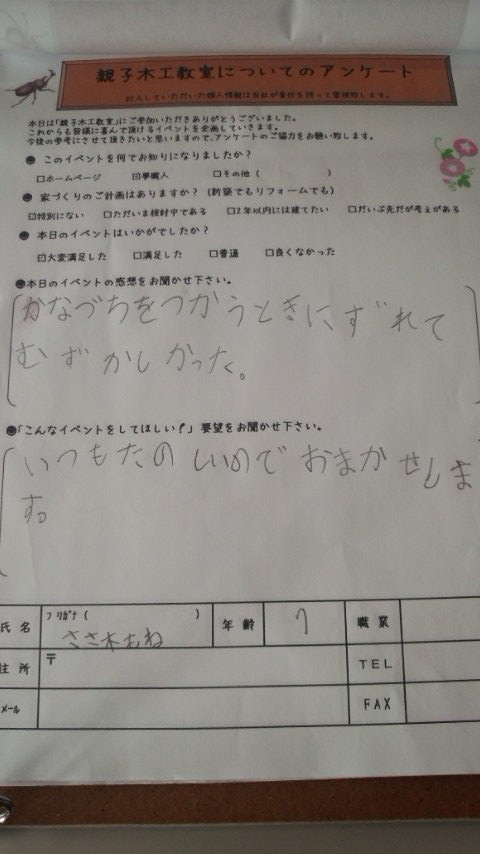 親子木工教室についてのアンケート
記入していただいた個人情報は当社が責任を持って管理致します。
本日は「親子木工教室」にご参加いただきありがとうございました。
これからも皆様に喜んで頂けるイベントを企画していきます。
今後の参考にさせて頂きたいと思いますので、アンケートのご協力をお願い致します。
このイベントを何でお知りになりましたか？
□ホームページ ☑夢職人 □その他（ ）
家づくりのご計画はありますか？（新築でもリフォームでも）
☑特別にない □ただいま検討中である □2年以内には建てたい □だいぶ先だが考えがある
本日のイベントはいかがでしたか？
☑大変満足した □満足した □普通 □良くなかった
●本日のイベントの感想をお聞かせ下さい。
かなづちをつかうときにずれて
むずかしかった。
「こんなイベントをしてほしい！」要望をお聞かせ下さい。
いつもたのしいのでおまかせしま
す。
氏名 ﾌﾘｶﾞﾅ（ ） 年齢 7 職業
ささ木
住所 〒 TEL
メール FAX